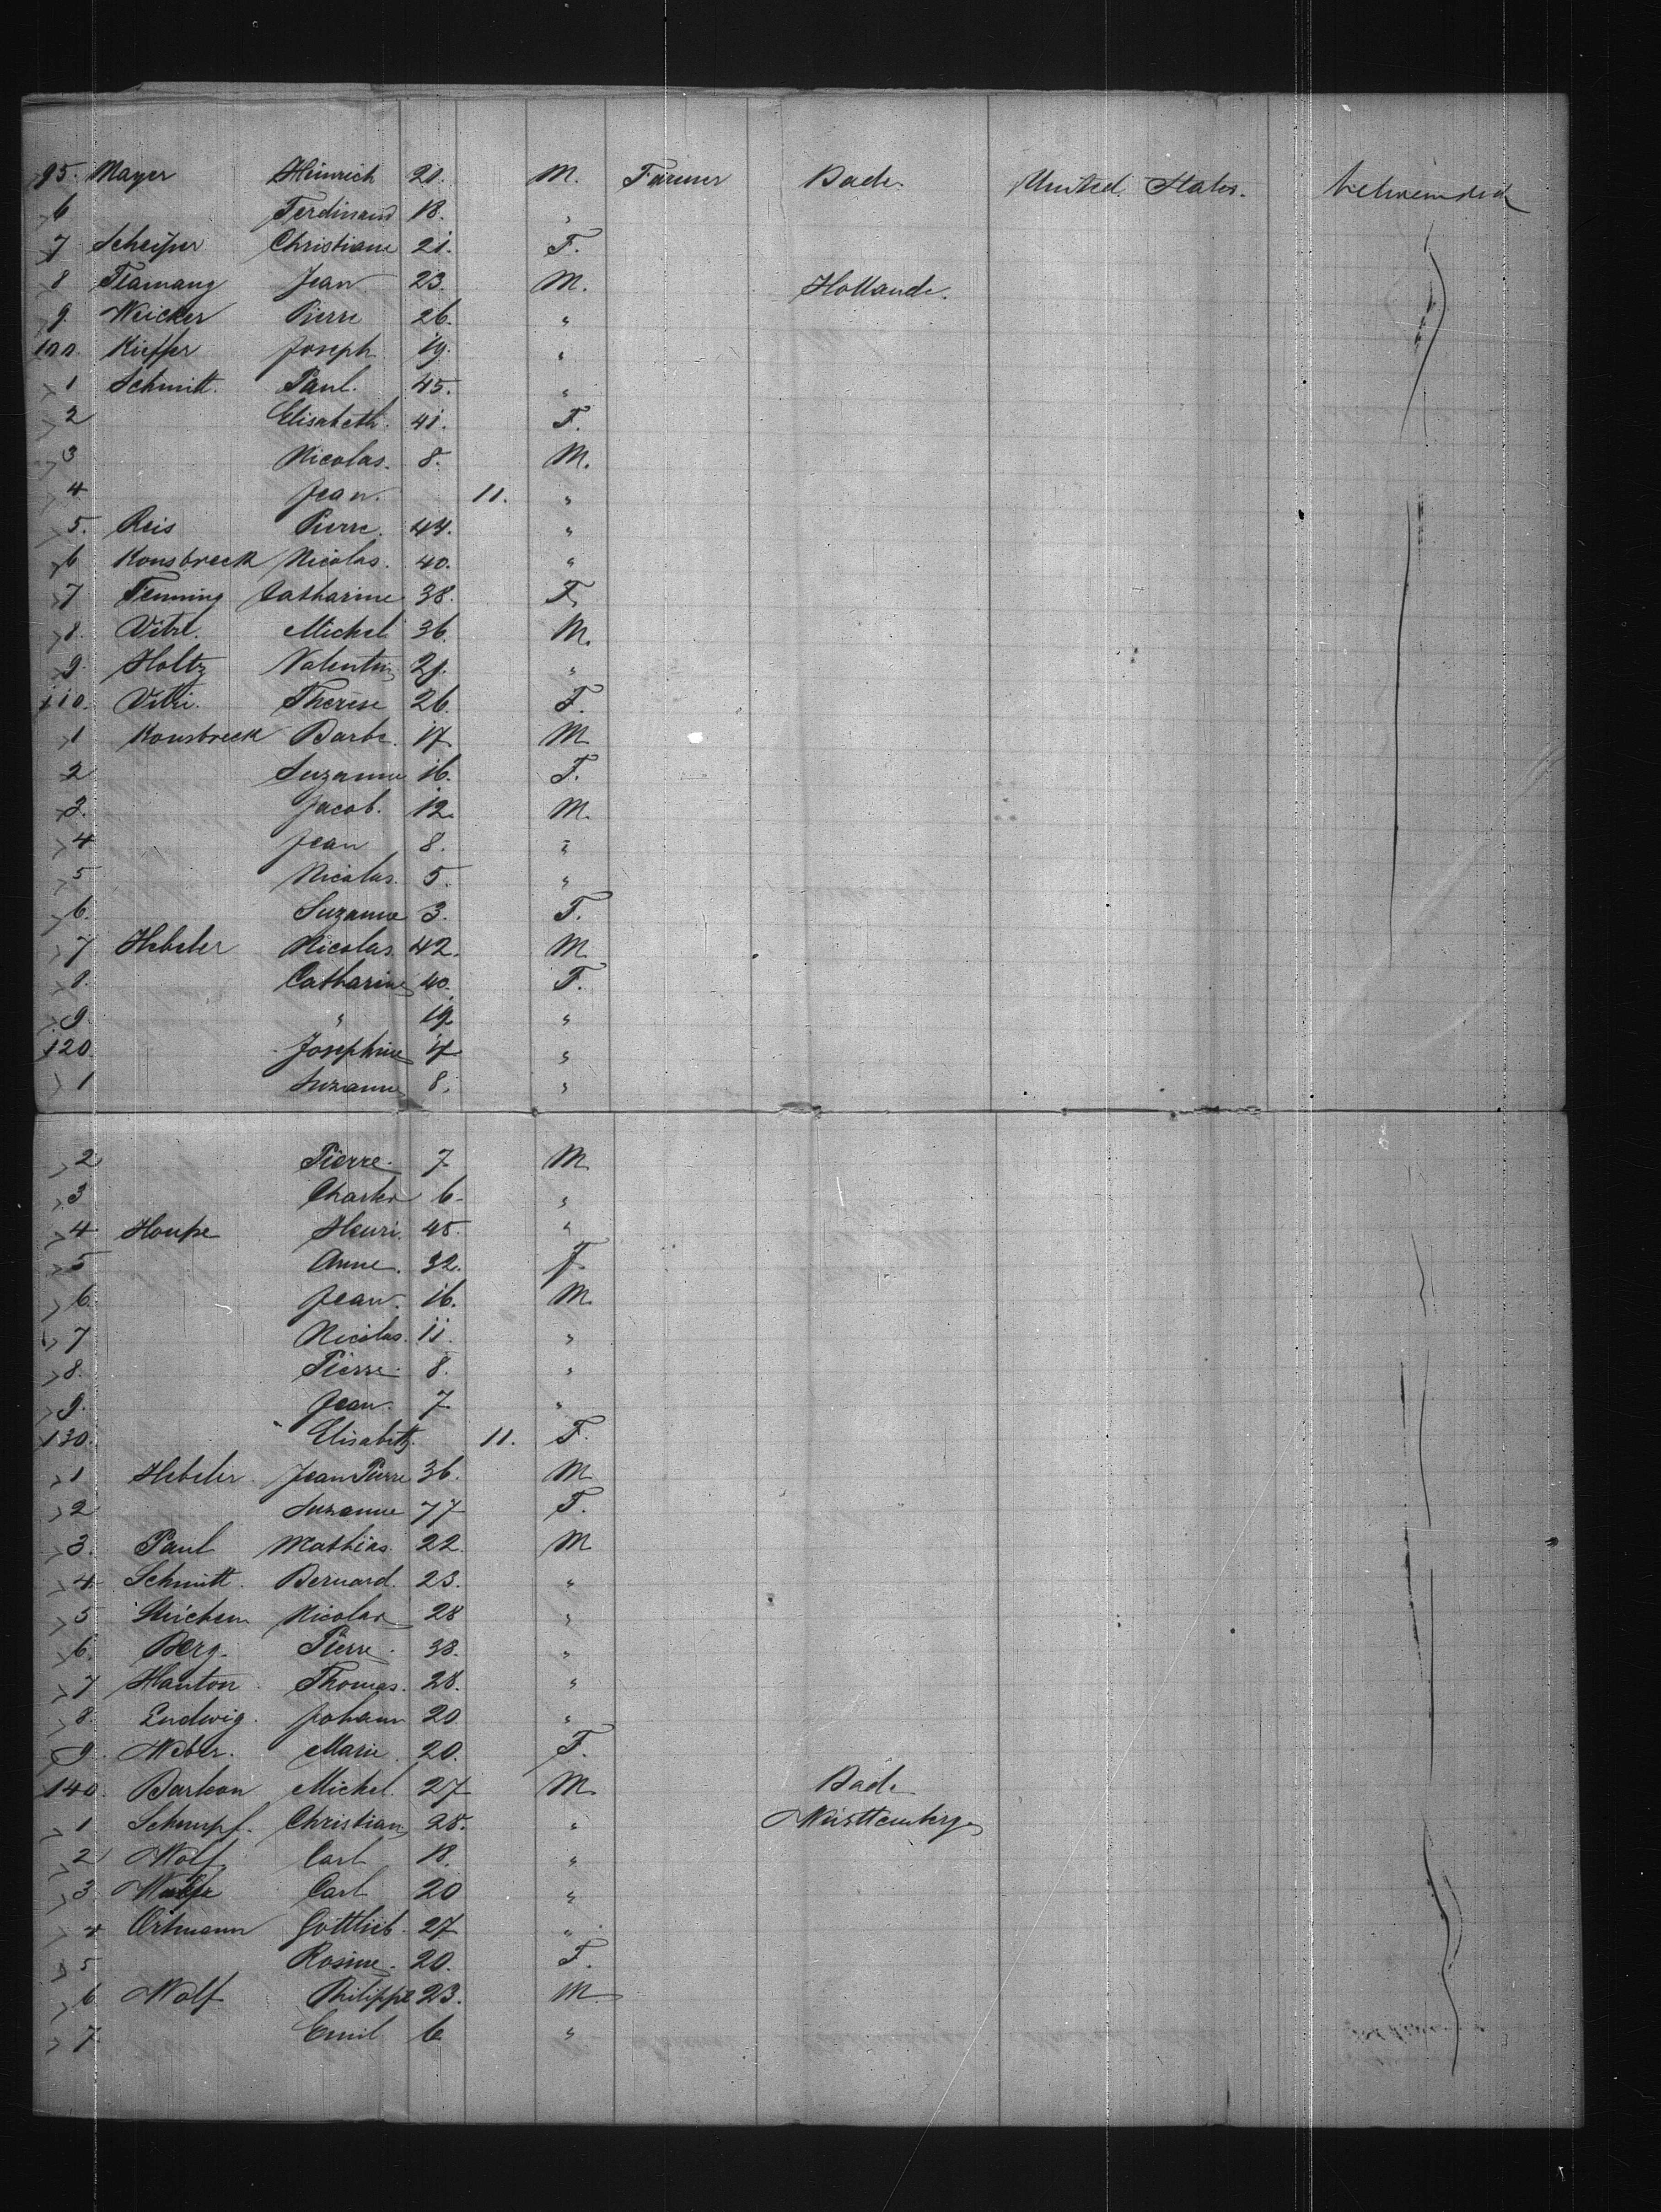 95. Mayer Heinrich 21. M. Farmer Bade. United States.
6 Ferdinand 18. "
7 Christiane 21. F.
8 Jean 23. M. Hollande.
9. Weicker Pierre 26. "
100. Kieffer Joseph 19. "
1 Schmitt. Paul. 45. "
2 Elisabeth. 41. F.
3 Nicolas. 8. M.
4 Jean. 11. "
5. Reis Pierre. 44. "
6 Konsbreck Nicolas. 40. "
7 Catharine 38. F.
8. Michel 36. M.
9. Holtz Valentin "
110. Therese 26. F.
1 Konsbreck Barbe. 17 M
2 Suzanne 16. F.
3. Jacob. 12. M.
4 Jean 8. "
5 Nicolas. 5. "
6. Suzanne 3. F.
7 Hebeler Nicolas. 42. M
8. Catharine 40. F.
9. " 19 "
120. Josephine 17 "
1 Suzanne 8. "
2 Pierre. 7 M
3 Charles 6. "
4 Houpe Henri. 45. "
5 Anne. 32. F.
6. Jean. 16. M.
7 Nicolas. 11. "
8. Pierre. 8. "
9. Jean. 7 "
130. Elisabeth. 11. F.
1 Hebeler. Jean Pierre 36. M
2 Suzanne 77 F.
3. Paul Mathias. 22. M
4. Schmitt. Bernard. 23. "
5 Nicolas 28 "
6. Berg. Pierre. 38. "
7 Hanton. Thomas. 28. "
8. Ludwig. Johann 20 "
9. Weber. Marie. 20. F.
140. Michel. 27 M Bade
1 Schempf. Christian 28. " Württemberg
2 Wolf Carl 18. "
3 Carl 20 "
4 Ortmann Gottlieb. 27 "
5 Rosine. 20. F.
6 Wolf Philippe 23. M
7. Emil 6 "